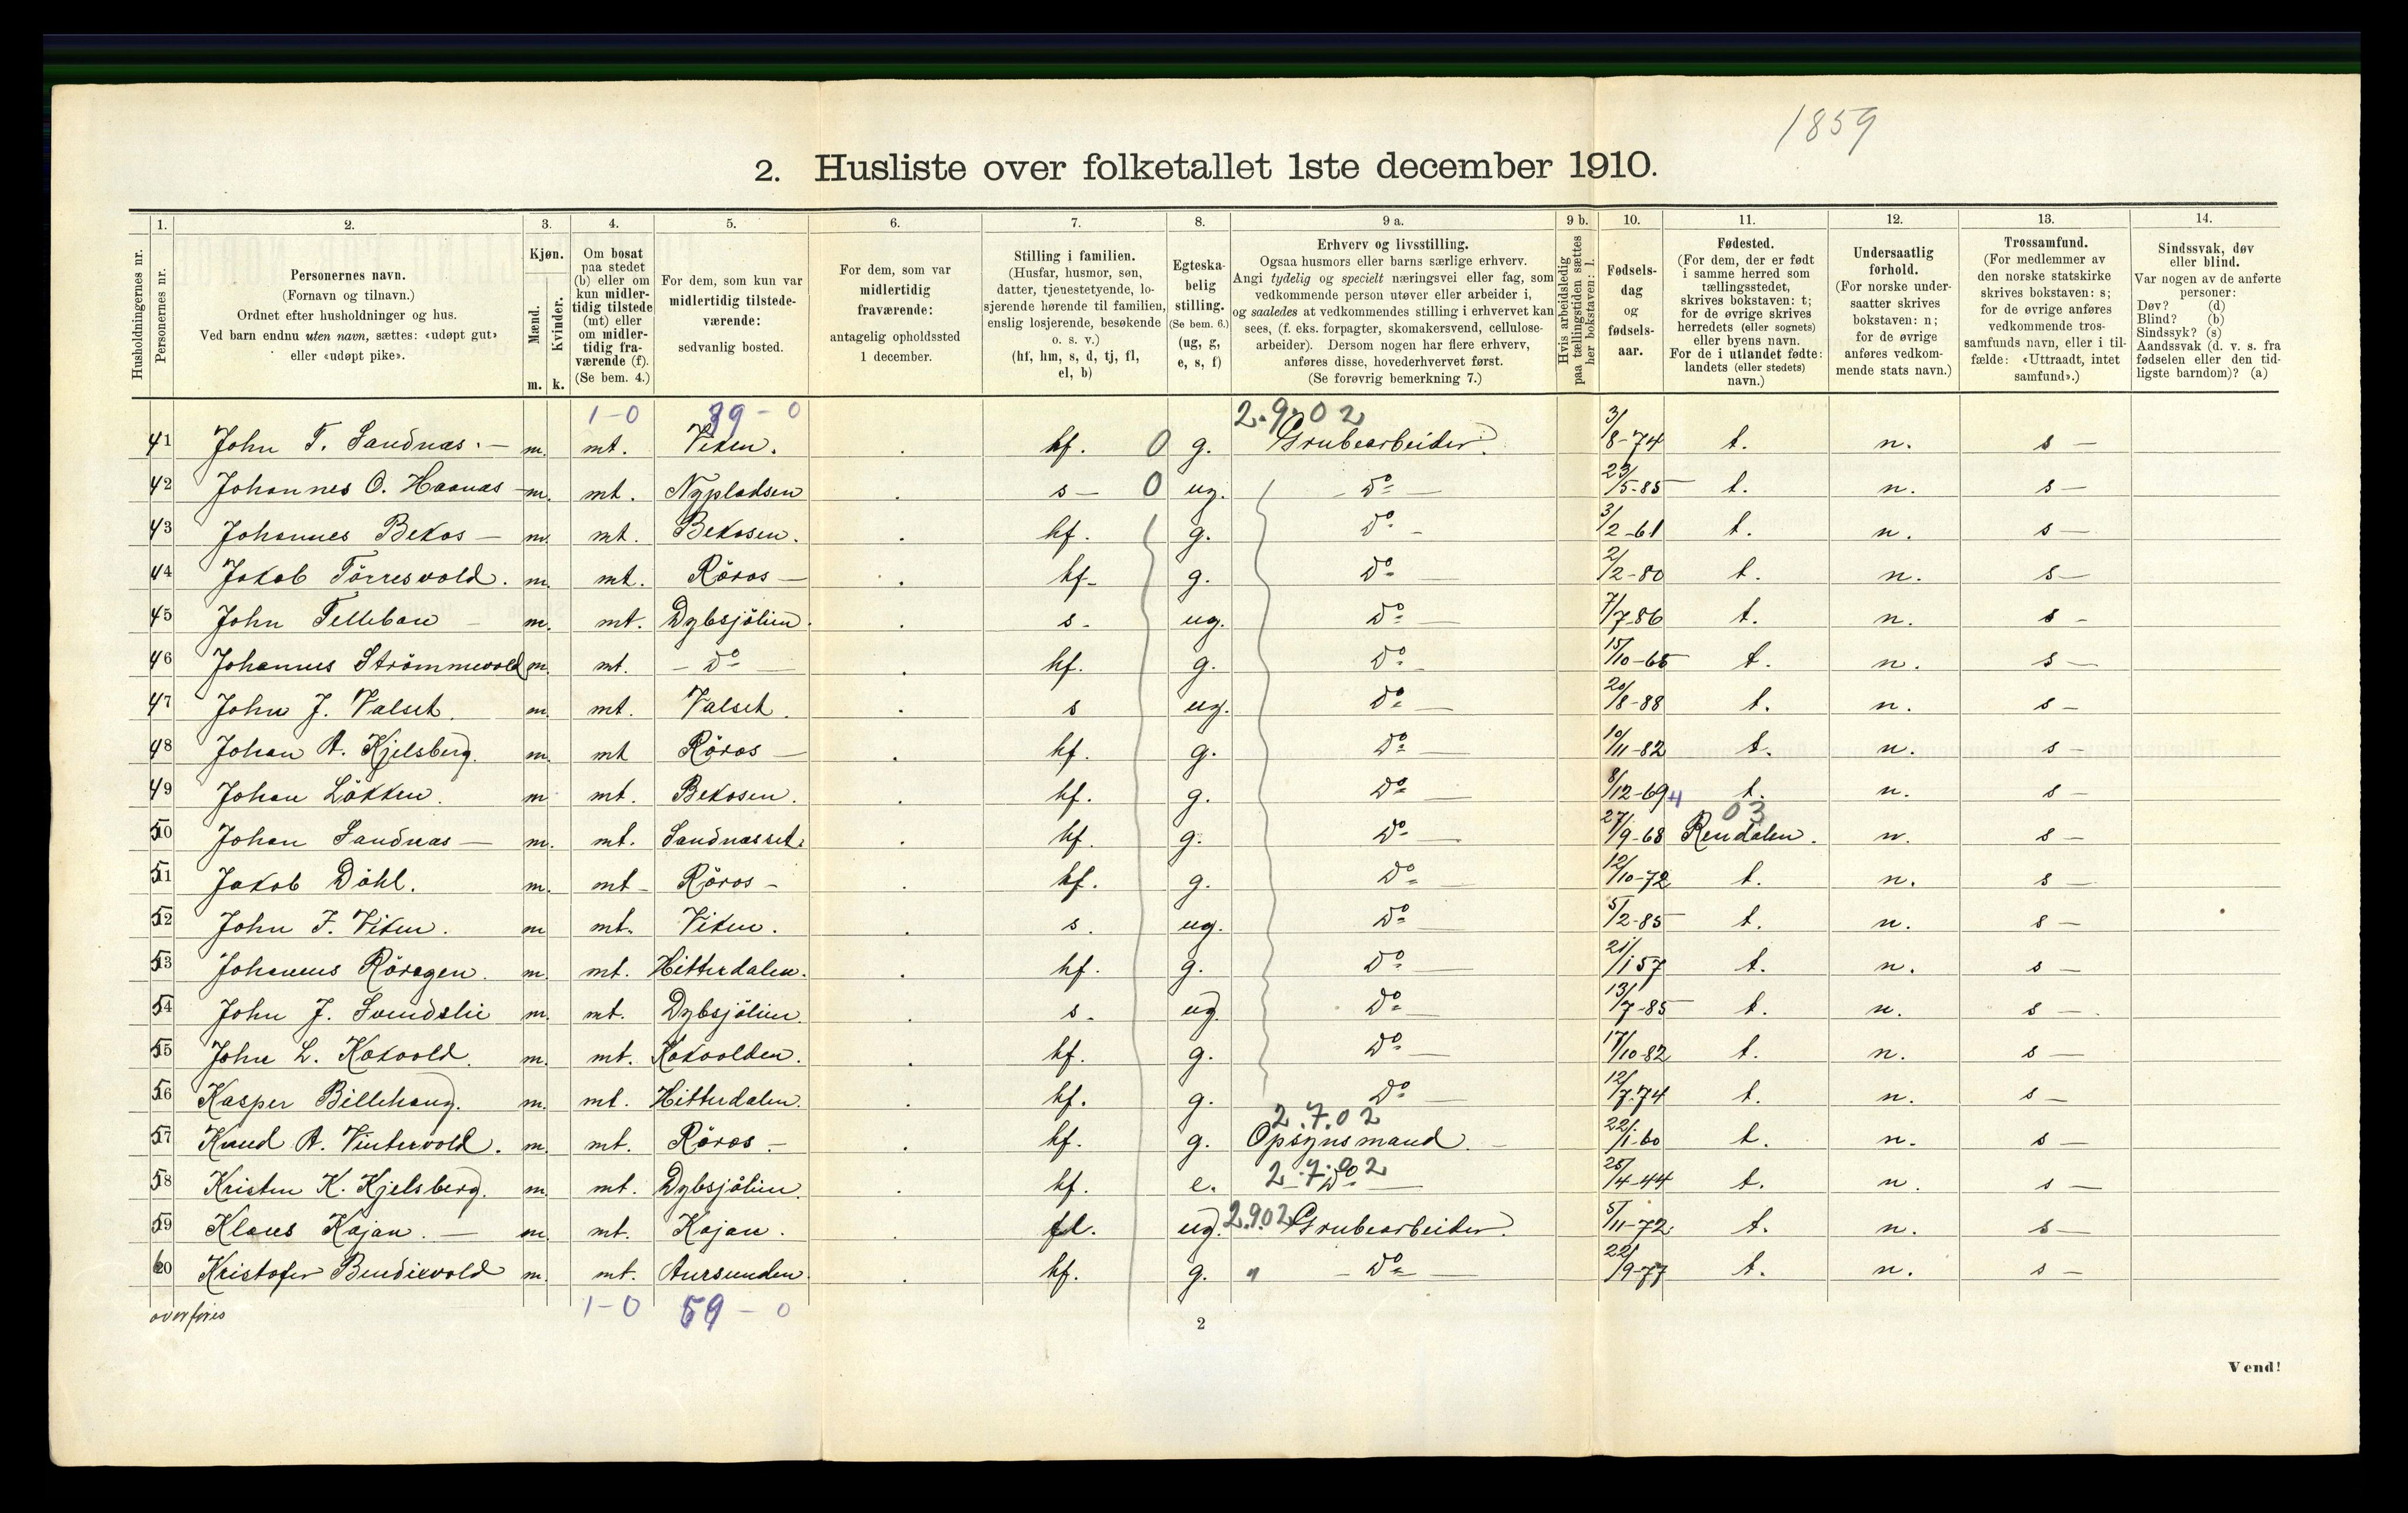 1859
2. Husliste over folketallet 1ste december 1910.
Husholdningernes nr.
1. Personernes nr.
2. Personernes navn. (Fornavn og tilnavn.) Ordnet efter husholdninger og hus. Ved barn endnu uten navn, sættes: «udøpt gut» eller «udøpt pike».
3. Kjøn. Mænd. m. Kvinder. k.
4. Om bosat paa stedet (b) eller om kun midlertidig tilstede (mt) eller om midlertidig fraværende (f). (Se bem. 4.)
5. For dem, som kun var midlertidig tilstedeværende: sedvanlig bosted.
6. For dem, som var midlertidig fraværende: antagelig opholdssted 1 december.
7. Stilling i familien. (Husfar, husmor, søn, datter, tjenestetyende, losjerende hørende til familien, enslig losjerende, besøkende o. s. v.) (hf, hm, s, d, tj, fl, el, b)
8. Egteskabelig stilling. (Se bem. 6.) (ug, g, e, s, f)
9 a. Erhverv og livsstilling. Ogsaa husmors eller barns særlige erhverv. Angi tydelig og specielt næringsvei eller fag, som vedkommende person utøver eller arbeider i, og saaledes at vedkommendes stilling i erhvervet kan sees, (f. eks. forpagter, skomakersvend, cellulose-arbeider). Dersom nogen har flere erhverv, anføres disse, hovederhvervet først. (Se forøvrig bemerkning 7.)
9 b. Hvis arbeidsledig paa tællingstiden sættes her bokstaven: l.
10. Fødsels-dag og fødsels-aar.
11. Fødested. (For dem, der er født i samme herred som tællingsstedet, skrives bokstaven: t; for de øvrige skrives herredets (eller sognets) eller byens navn. For de i utlandet fødte: landets (eller stedets) navn.)
12. Undersaatlig forhold. (For norske undersaatter skrives bokstaven: n; for de øvrige anføres vedkommende stats navn.)
13. Trossamfund. (For medlemmer av den norske statskirke skrives bokstaven: s; for de øvrige anføres vedkommende trossamfunds navn, eller i tilfælde: «Uttraadt, intet samfund».)
14. Sindssvak, døv eller blind. Var nogen av de anførte personer: Døv? (d) Blind? (b) Sindssyk? (s) Aandssvak (d. v. s. fra fødselen eller den tidligste barndom)? (a)
1-0 39-0 2.9.02
41 John T. Sandnas. m. mt. Viken. hf. 0 g. Grubearbeider. 3/8-74 t. n. s
42 Johannes O. Haanas m. mt. Nypladsen s 0 ug. Do 23/5-85 t. n. s
43 Johannes Bekos m. mt. Bekosen. hf. g. Do 3/2-61 t. n. s
44 Jakob Törresvold. m. mt. Röros hf. g. Do 2/2-80 t. n. s
45 John Tellebon m. mt. Dybsjölien. s. ug. Do 7/7-86 t. n. s
46 Johannes Strömmevold m. mt. Do hf. g. Do 15/10-65 t. n. s
47 John J. Valset. m. mt. Valset. s ug. Do 20/8-88 t. n. s
48 Johan A. Kjelsberg. m. mt Röros hf. g. Do 10/11-82 t. n. s
49 Johan Lökken. m mt. Bekosen. hf. g. Do 8/12-69 t. n. s
4 03
50 Johan Sandnas m. mt. Sandnasset. hf. g. Do 27/9-68 Rendalen. n. s
51 Jakob Döhl. m. mt Röros hf. g. Do 12/10-72 t. n. s
52 John J. Viken. m mt. Viken. s. ug. Do 5/2-85 t. n. s
53 Johannes Röragen. m. mt. Hitterdalen. hf. g. Do 21/1 57 t. n. s
54 John J. Svendsli m. mt. Dybsjölien. s. ug Do 13/7-85 t. n. s
55 John L. Kokvold. m. mt. Kokvolden. hf. g. Do 17/10-82 t. n. s
56 Kasper Billehaug. m. mt. Hitterdalen. hf. g. Do 12/7.74 t. n. s
2.7.02
57 Knud A. Vintervold. m. mt. Röros hf. g. Opsynsmand. 22/1-60 t. n. s
2.7.02
58 Kristen K. Kjelsberg. m. mt. Dybsjölien. hf. e. Do 25/4-44 t. n. s
59 Klaus Kojan. m. mt. Kojan. fl. ug. 2.9.02 Grubearbeider. 5/11-72 t. n. s
60 Kristofer Bendixvold m. mt. Aursunden. hf. g. " Do 22/9-77 t. n. s
overføres 1-0 59-0
2
Vend!